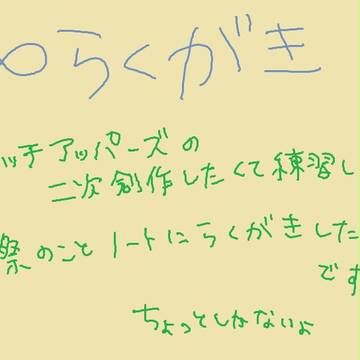 らくがき
ッチアッパーズの
二次創作したくて練習し
祭のことノートにらくがきした
です
ちょっとしかないよ